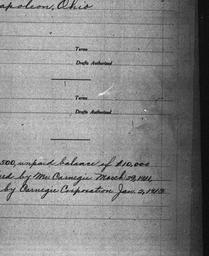 apoleon, Ohio
Terms
Drafts Authorized
Terms
Drafts Authorized
500, unpaid balance of $10,000
ed by Mr. Carnegie March 29, 1911,
by Carnegie Corporation Jan. 2, 1913